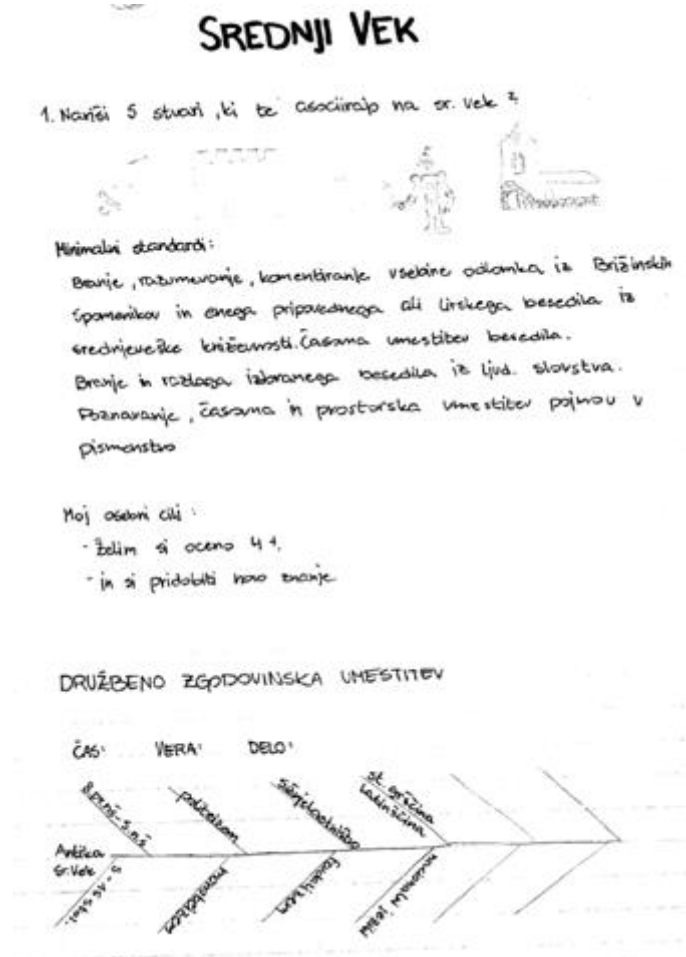 SREDNJI VEK
1. Nariši 5 stvari, ki te asociirajo na sr. vek?
Minimalni standardi:
Branje, razumevanje, komentiranje vsebine odlomka iz Brižinskih
spomenikov in enega pripovednega ali lirskega besedila iz
srednjeveške književnosti. Časovna umestitev besedila.
Branje in razlaga izbranega besedila iz ljud. slovstva.
Poznavanje, časovna in prostorska umestitev pojmov v
pismenstvo
Moj osebni cilj:
- želim si oceno 4
- in si pridobiti novo znanje
DRUŽBENO ZGODOVINSKA UMESTITEV
ČAS: VERA: DELO:
8.pr.nš-5.nš politeizem st. grščina
latinščina
Antika
Sr. Vek
5-15 stol. monoteizem fevdalizem